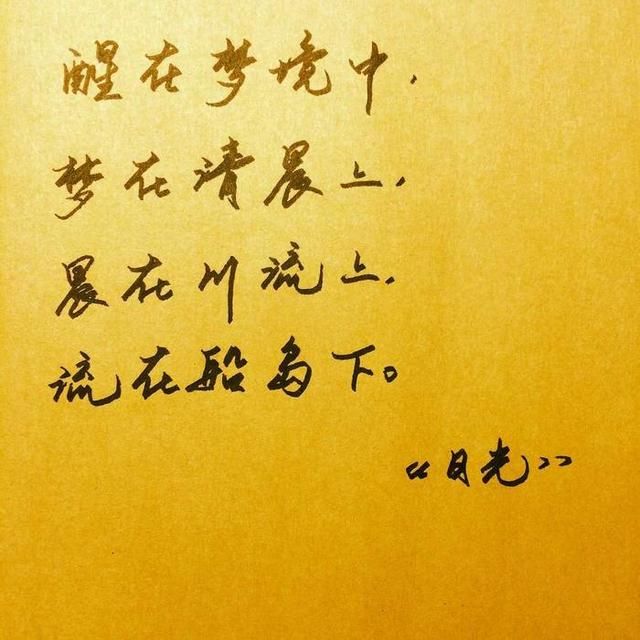 醒在梦境中，
梦在清晨上，
晨在川流上，
流在船岛下。
《月光》